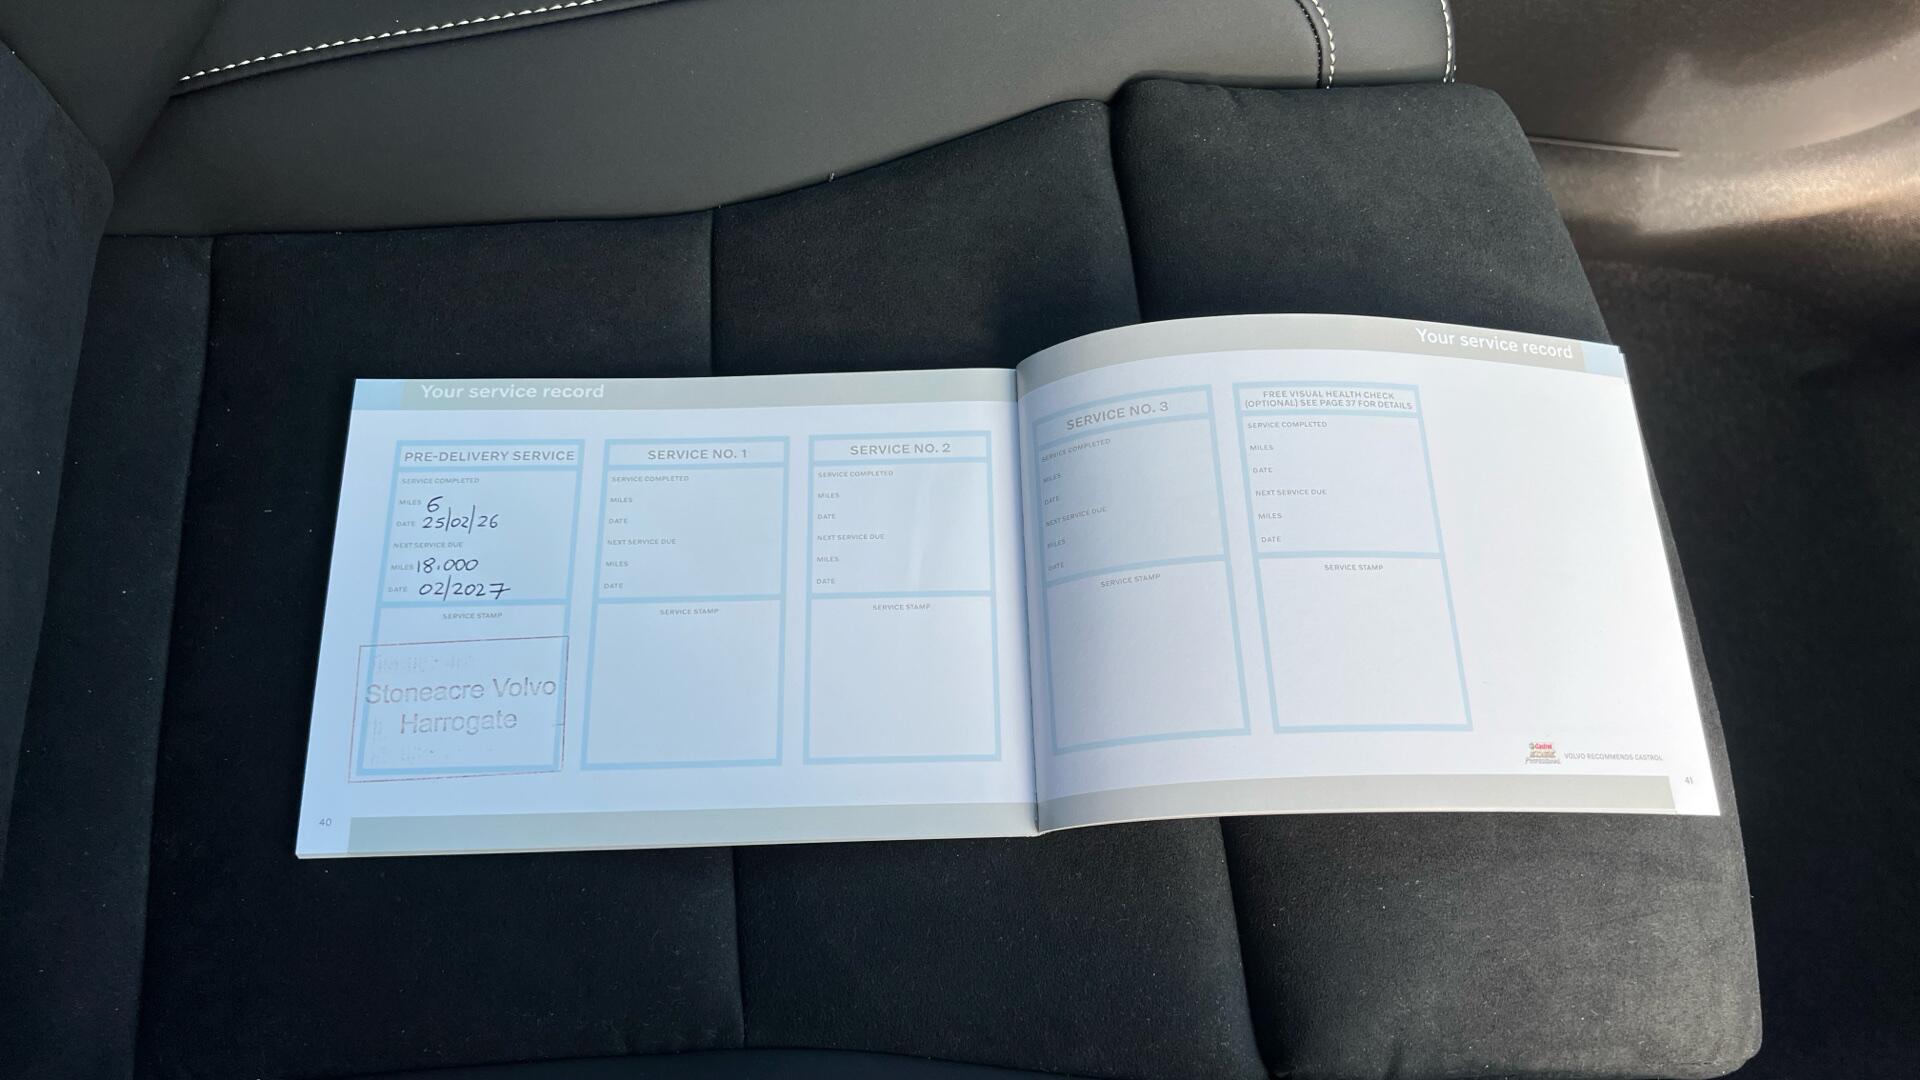 Your service record
PRE-DELIVERY SERVICE
SERVICE COMPLETED
MILES 6
DATE 25/02/26
NEXT SERVICE DUE
MILES 18.000
DATE 02/2027
SERVICE STAMP
Stoneacre Volvo
Harrogate
SERVICE NO. 1
SERVICE COMPLETED
MILES
DATE
NEXT SERVICE DUE
MILES
DATE
SERVICE STAMP
SERVICE NO. 2
SERVICE COMPLETED
MILES
DATE
NEXT SERVICE DUE
MILES
DATE
SERVICE STAMP
40
Your service record
SERVICE NO. 3
SERVICE COMPLETED
MILES
DATE
NEXT SERVICE DUE
MILES
DATE
SERVICE STAMP
FREE VISUAL HEALTH CHECK
(OPTIONAL) SEE PAGE 37 FOR DETAILS
SERVICE COMPLETED
MILES
DATE
NEXT SERVICE DUE
MILES
DATE
SERVICE STAMP
Castrol
EDGE
Professional
VOLVO RECOMMENDS CASTROL
41